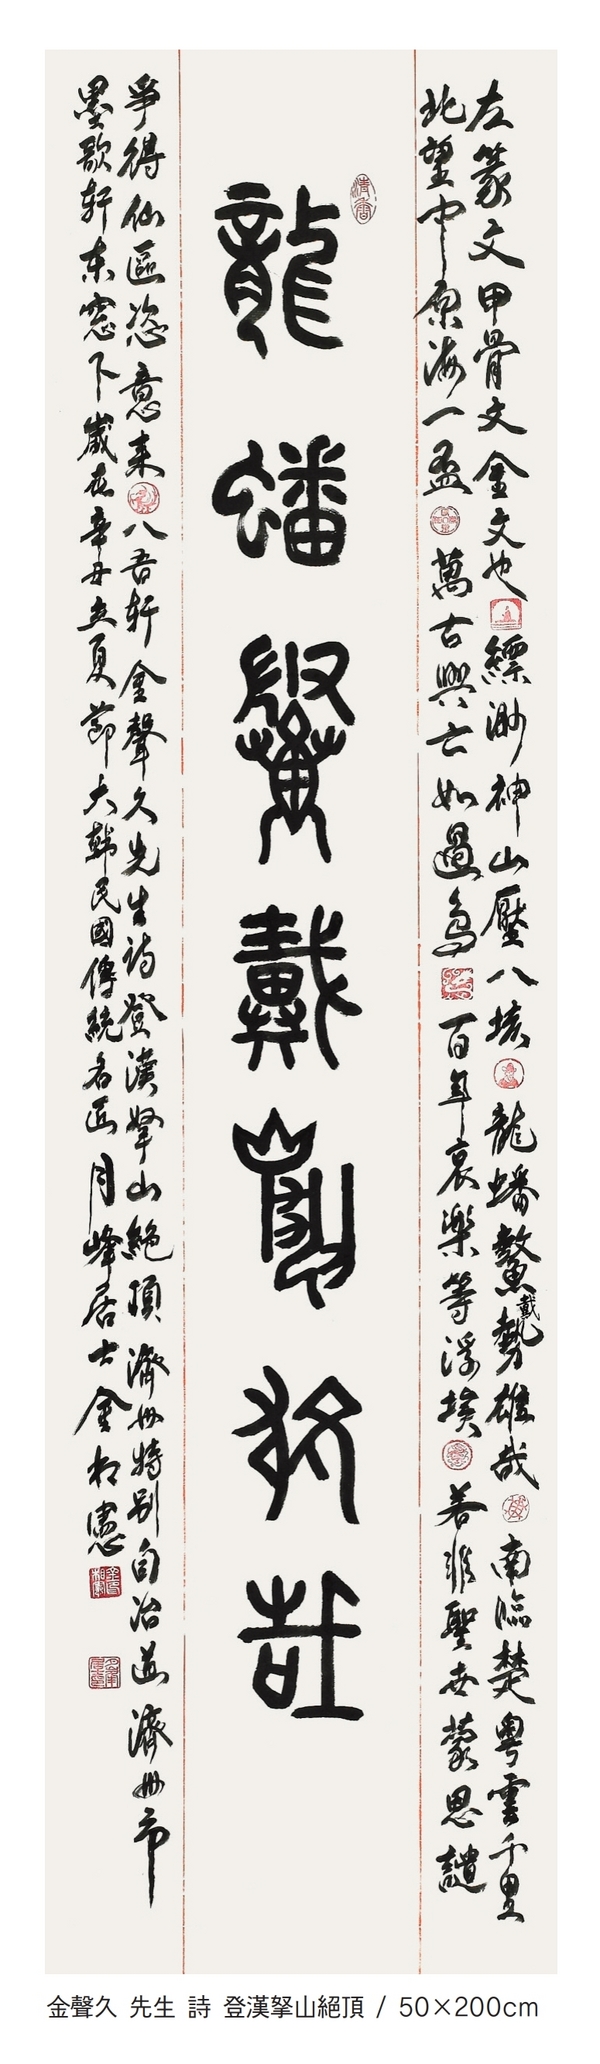 左篆文甲骨文金文也 縹渺神山壓八垓 龍蟠鰲戴勢雄哉 南臨楚粤雲千里
北望中原海一盃 萬古興亡如過鳥 百年哀樂等浮埃 若非聖世蒙恩譴
龍蟠鰲戴勢雄哉
爭得仙區恣意来 八吾軒金聲久先生詩登漢拏山絶頂 濟州特別自治道 濟州市
墨歌軒東窓下歲在辛丑立夏節大韓民國傳統名匠月峰居士金相憲
金聲久 先生 詩 登漢拏山絕頂 / 50×200cm